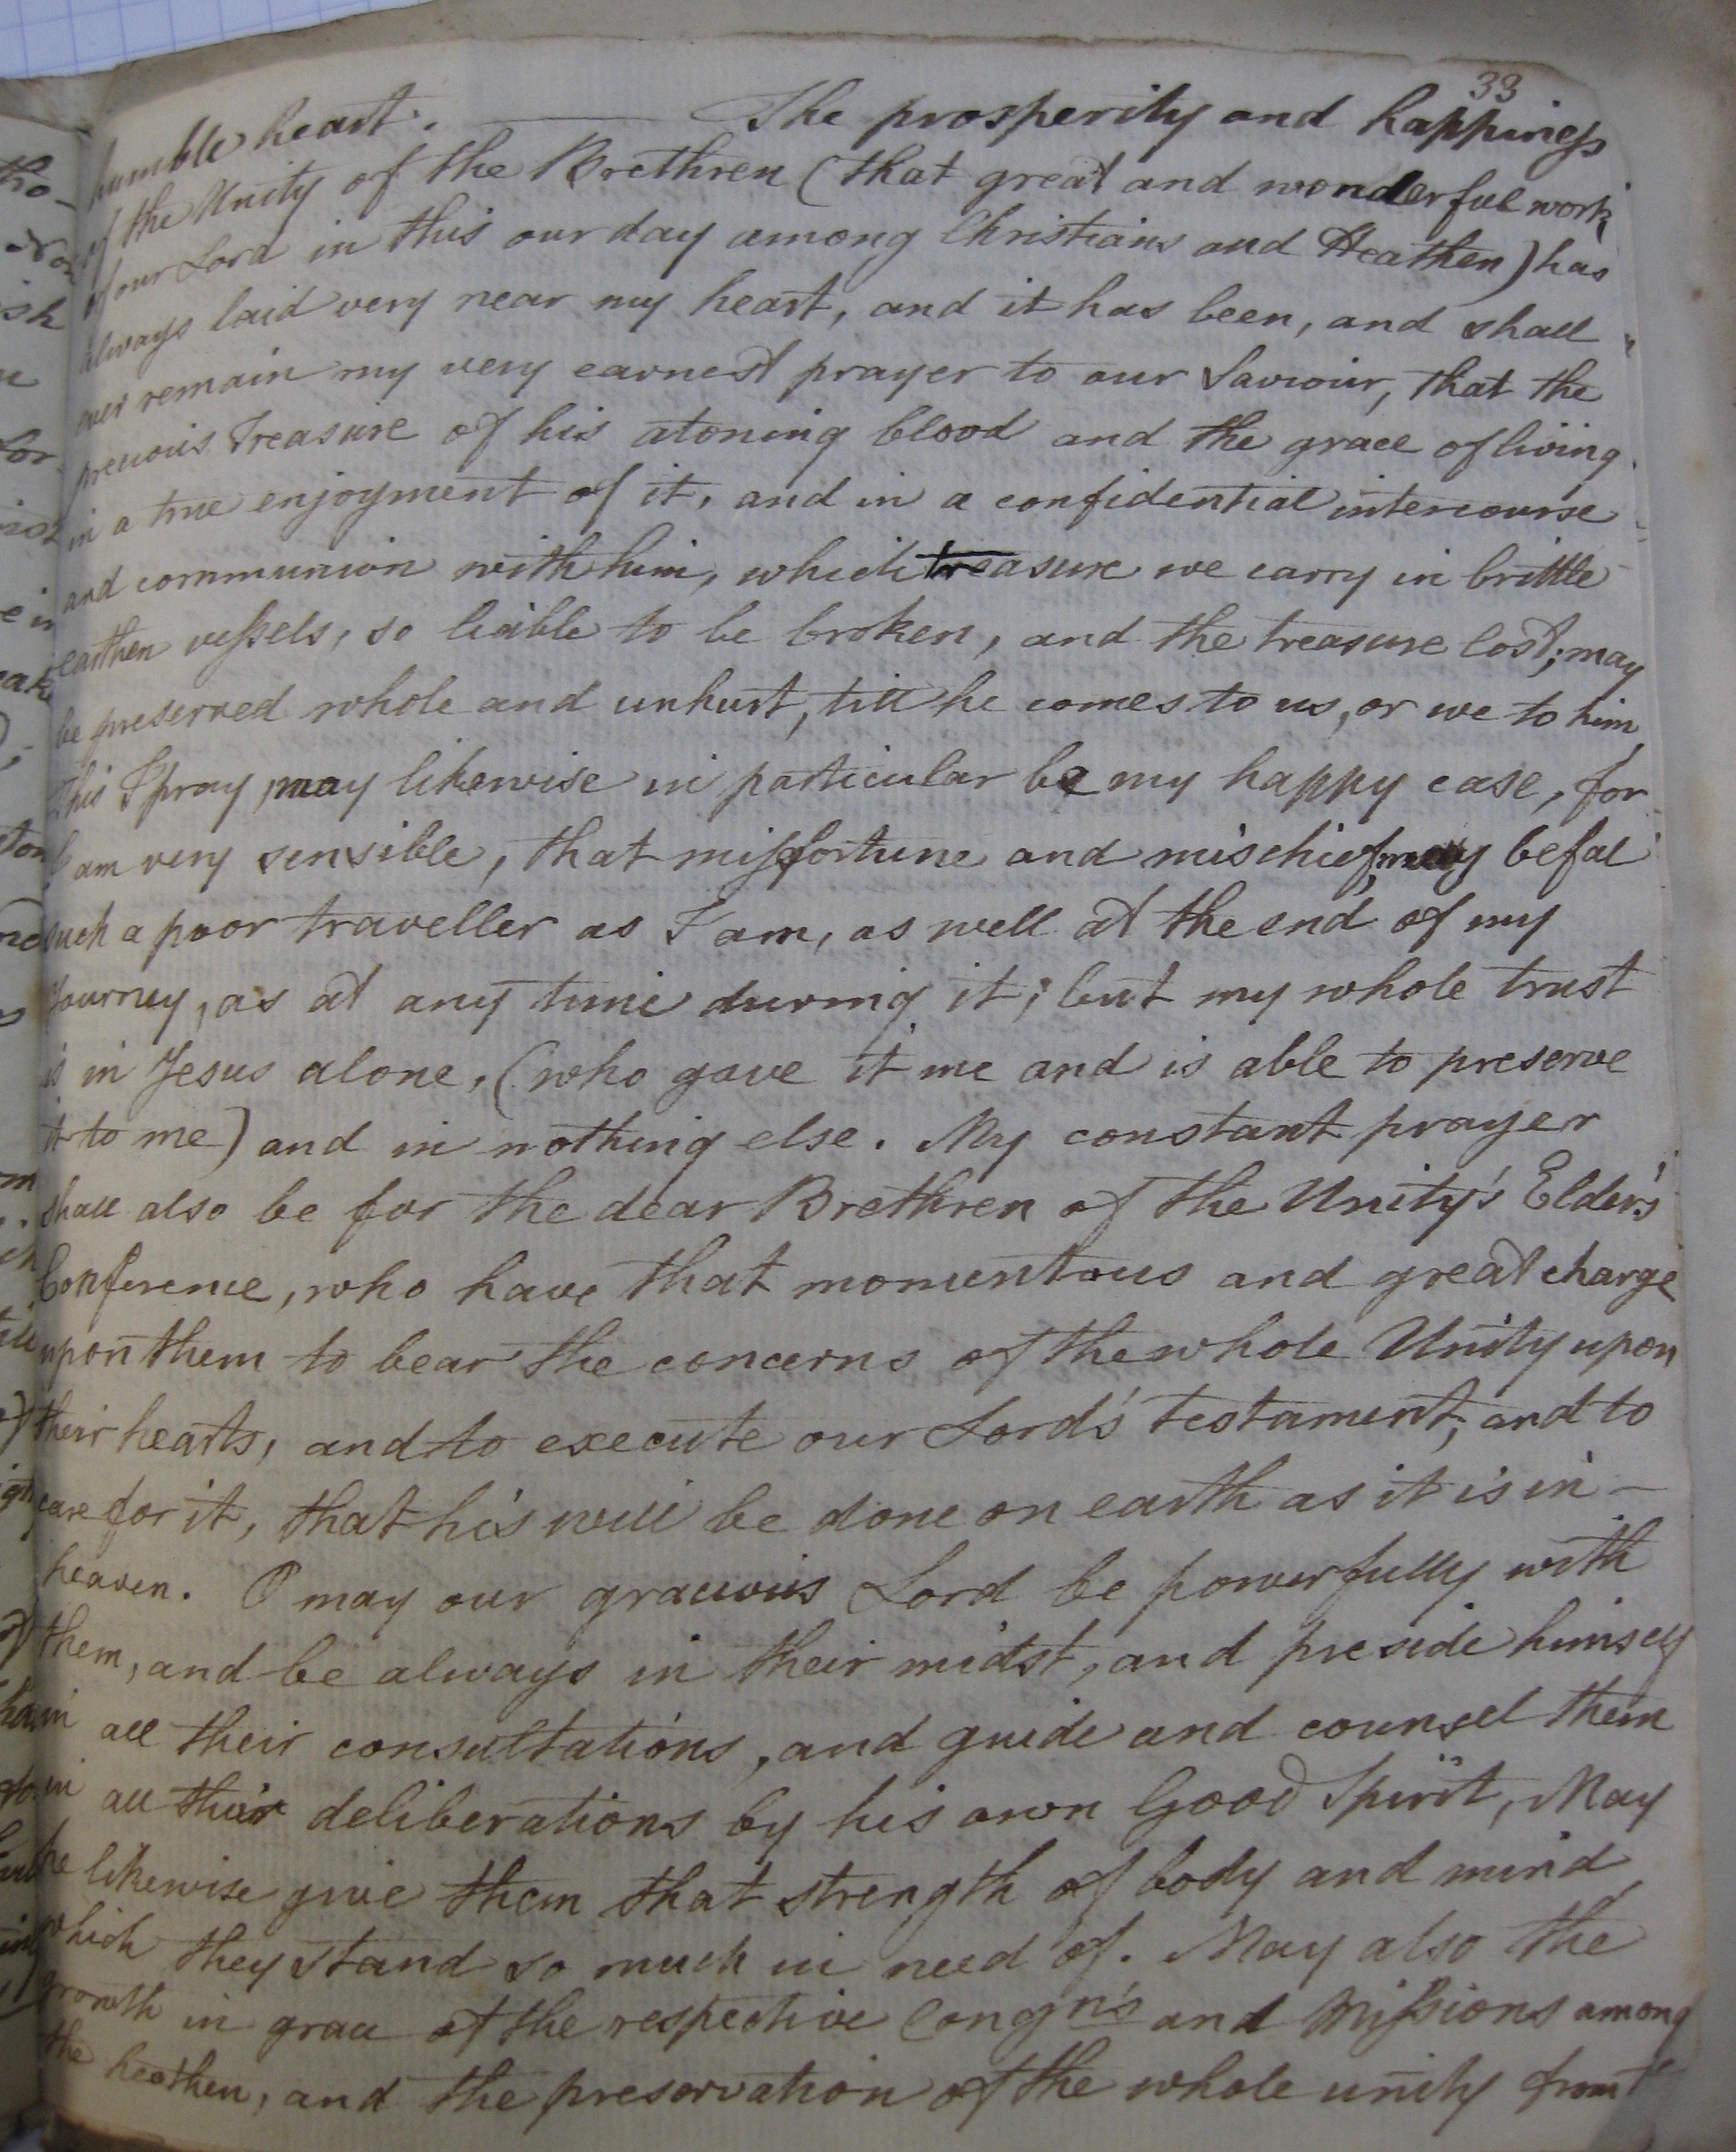 33
humble heart. — The prosperity and happiness
of the Unity of the Brethren (that great and wonderful work
of our Lord in this our day among Christians and Heathen) has
always laid very near my heart, and it has been, and shall
ever remain my very earnest prayer to our Saviour, that the
precious Treasure of his atoning blood and the grace of living
in a true enjoyment of it, and in a confidential intercourse
and communion with him, which treasure we carry in brittle
earthen vessels, so liable to be broken, and the treasure lost; may
be preserved whole and unhurt, till he comes to us, or we to him,
This I pray, may likewise in particular be my happy case, for
I am very sensible, that misfortune and mischief, may befal
such a poor traveller as I am, as well at the end of my
Journey, as at any time during it; but my whole trust
is in Jesus alone, (who gave it me and is able to preserve
it to me) and in nothing else. My constant prayer
shall also be for the dear Brethren of the Unity's Elder's
Conference, who have that momentous and great charge
upon them to bear the concerns of the whole Unity upon
their hearts, and to execute our Lord's testament, and to
care for it, that his will be done on earth as it is in -
heaven. O may our gracious Lord be powerfully with
them, and be always in their midst, and preside himself
in all their consultations, and guide and counsel them
in all their deliberations by his own Good Spirit, May
he likewise give them that strength of body and mind
which they stand so much in need of. May also the
growth in grace of the respective Congn's and Missions among
the heathen, and the preservation of the whole unity from